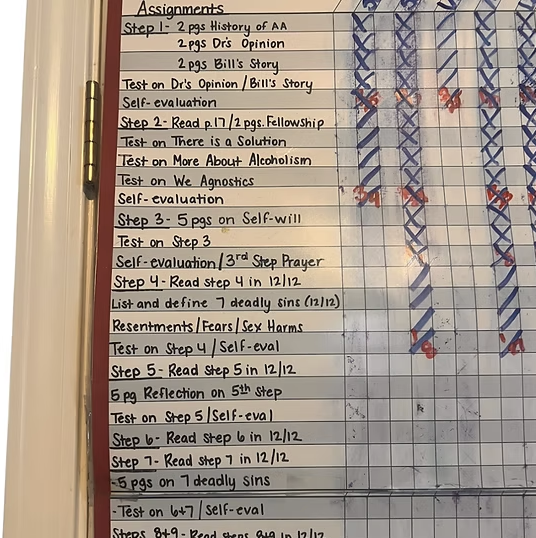 Assignments
Step 1- 2 pgs History of AA
2 pgs Dr's Opinion
2 pgs Bill's Story
Test on Dr's Opinion / Bill's Story
Self-evaluation
Step 2- Read p.17/2pgs. Fellowship
Test on There is a Solution
Test on More About Alcoholism
Test on We Agnostics
Self-evaluation
Step 3- 5 pgs on Self-will
Test on Step 3
Self-evaluation/3rd Step Prayer
Step 4- Read step 4 in 12/12
List and define 7 deadly sins (12/12)
Resentments/Fears/Sex Harms
Test on Step 4 /Self-eval
Step 5- Read Step 5 in 12/12
5 pg Reflection on 5th Step
Test on Step 5/Self-eval
Step 6- Read step 6 in 12/12
Step 7- Read step 7 in 12/12
-5 pgs on 7 deadly sins
-Test on 6+7/Self-eval
Steps 8+9- Read steps 8+9 in 12/12